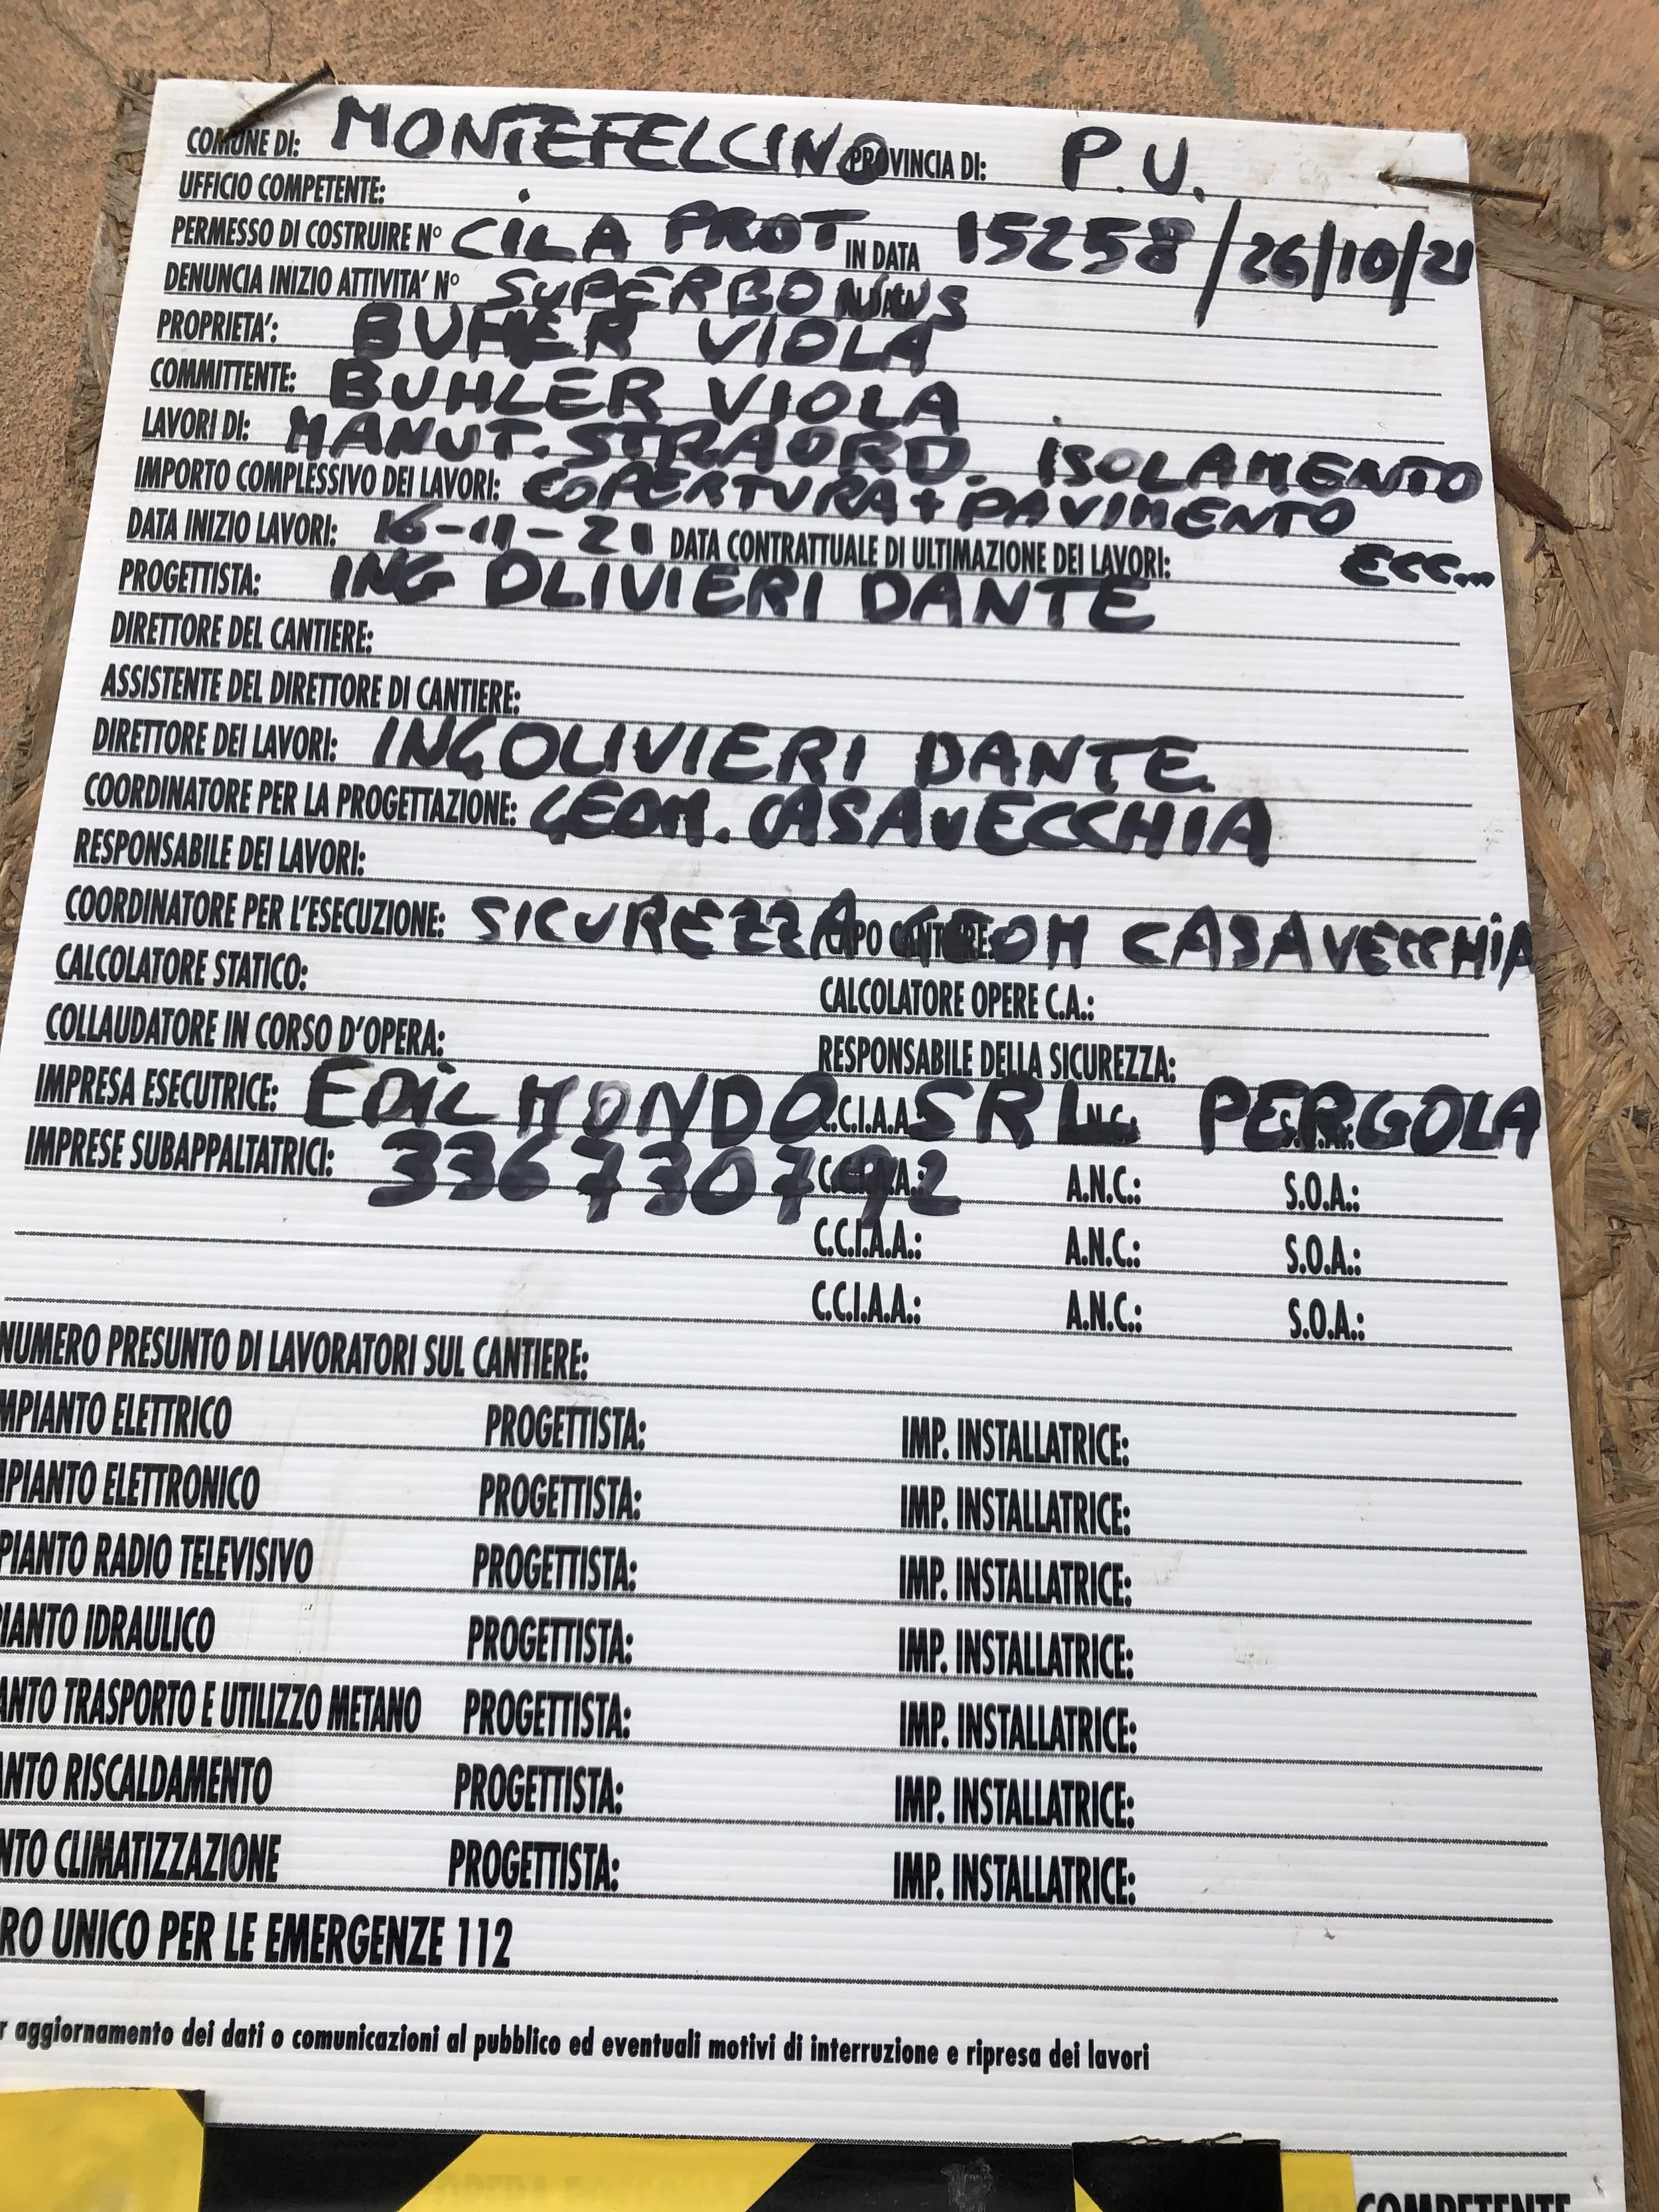 COMUNE DI: MONTEFELCINO PROVINCIA DI: P.U.
UFFICIO COMPETENTE:
PERMESSO DI COSTRUIRE N° CILA PROT IN DATA 15258/26/10/21
DENUNCIA INIZIO ATTIVITA' N° SUPERBONUS IN DATA
PROPRIETA': BUHER VIOLA
COMMITTENTE: BUHLER VIOLA
LAVORI DI: MANUT. STRAORD. ISOLAMENTO
IMPORTO COMPLESSIVO DEI LAVORI: COPERTURA + PAVIMENTO
DATA INIZIO LAVORI: 16-11-21 DATA CONTRATTUALE DI ULTIMAZIONE DEI LAVORI: ECC...
PROGETTISTA: ING OLIVIERI DANTE
DIRETTORE DEL CANTIERE:
ASSISTENTE DEL DIRETTORE DI CANTIERE:
DIRETTORE DEI LAVORI: ING OLIVIERI DANTE
COORDINATORE PER LA PROGETTAZIONE: GEOM. CASAVECCHIA
RESPONSABILE DEI LAVORI:
COORDINATORE PER L'ESECUZIONE: SICUREZZA CAPO CANTIERE: GEOM CASAVECCHIA
CALCOLATORE STATICO: CALCOLATORE OPERE C.A.:
COLLAUDATORE IN CORSO D'OPERA: RESPONSABILE DELLA SICUREZZA:
IMPRESA ESECUTRICE: EDIL MONDO C.C.I.A.A. SRL PERGOLA
IMPRESE SUBAPPALTATRICI: 3367307092 C.C.I.A.A.: A.N.C.: S.O.A.:
C.C.I.A.A.: A.N.C.: S.O.A.:
C.C.I.A.A.: A.N.C.: S.O.A.:
NUMERO PRESUNTO DI LAVORATORI SUL CANTIERE:
MPIANTO ELETTRICO PROGETTISTA: IMP. INSTALLATRICE:
PIANTO ELETTRONICO PROGETTISTA: IMP. INSTALLATRICE:
PIANTO RADIO TELEVISIVO PROGETTISTA: IMP. INSTALLATRICE:
IANTO IDRAULICO PROGETTISTA: IMP. INSTALLATRICE:
ANTO TRASPORTO E UTILIZZO METANO PROGETTISTA: IMP. INSTALLATRICE:
ANTO RISCALDAMENTO PROGETTISTA: IMP. INSTALLATRICE:
NTO CLIMATIZZAZIONE PROGETTISTA: IMP. INSTALLATRICE:
RO UNICO PER LE EMERGENZE 112
r aggiornamento dei dati o comunicazioni al pubblico ed eventuali motivi di interruzione e ripresa dei lavori
COMPETENTE